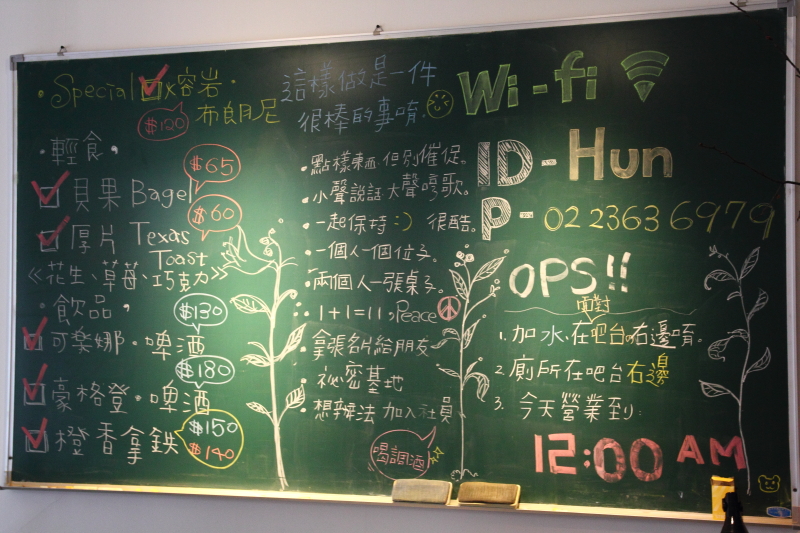 Special
熔岩
布朗尼
$120
輕食,
貝果 Bagel
$65
厚片 Texas Toast
$60
《花生、草莓、巧克力》
飲品,
可樂娜·啤酒
$130
豪格登·啤酒
$180
橙香拿鐵
$150
$140
這樣做是一件
很棒的事唷.
點樣東西,但別催促。
小聲說話 大聲哼歌。
一起保持:) 很酷。
一個人一個位子。
兩個人一張桌子。
1+1=11,Peace
拿張名片給朋友
祕密基地
想辦法 加入社員
喝調酒
Wi-fi
ID-Hun
P-0223636979
OPS!!
面對
1.加水、在吧台の右邊唷。
2.廁所在吧台右邊
3.今天營業到:
12:00 AM